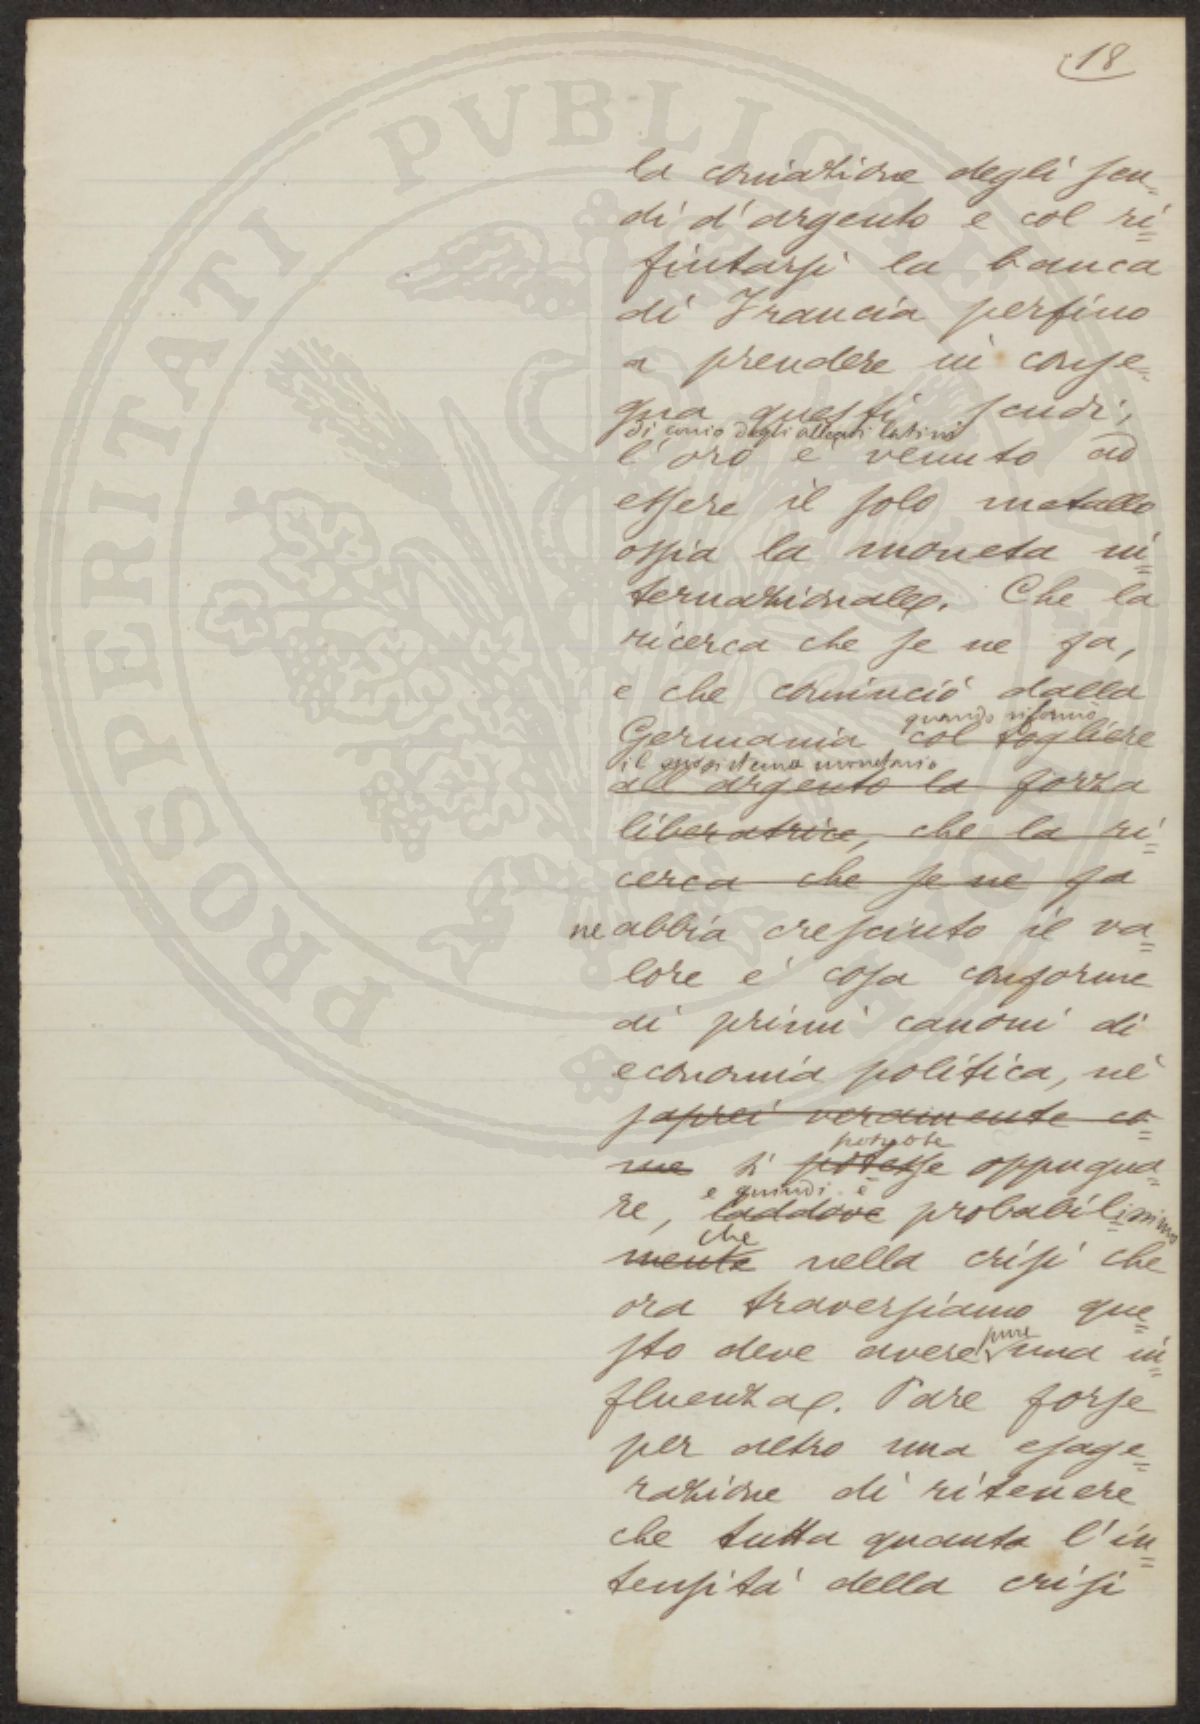 18
la coniazione degli scu=
di d'argento e col ri=
fiutarsi la banca
di Francia perfino
a prendere in conse=
gna questi scudi,
di conio degli alleati latini
l'oro è venuto ad
essere il solo metallo
ossia la moneta in=
ternazionale. Che la
ricerca che se ne fa,
e che cominciò dalla
quando riformò
Germania col togliere
il suo sistema monetario
all'argento la forza
liberatrice, che la ri=
cerca che se ne fa
ne abbia cresciuto il va=
lore è cosa conforme
ai primi canoni di
economia politica, nè
saprei veramente co=
me si potesse oppugna=
re, laddove probabilissimo
e quindi è
che
mente nella crisi che
ora traversiamo que=
sto deve avere pure una in=
fluenza. Pare forse
per altro una esage=
razione di ritenere
che tutta quanta l'in=
tensità della crisi
PROSPERITATI PVBLICAE